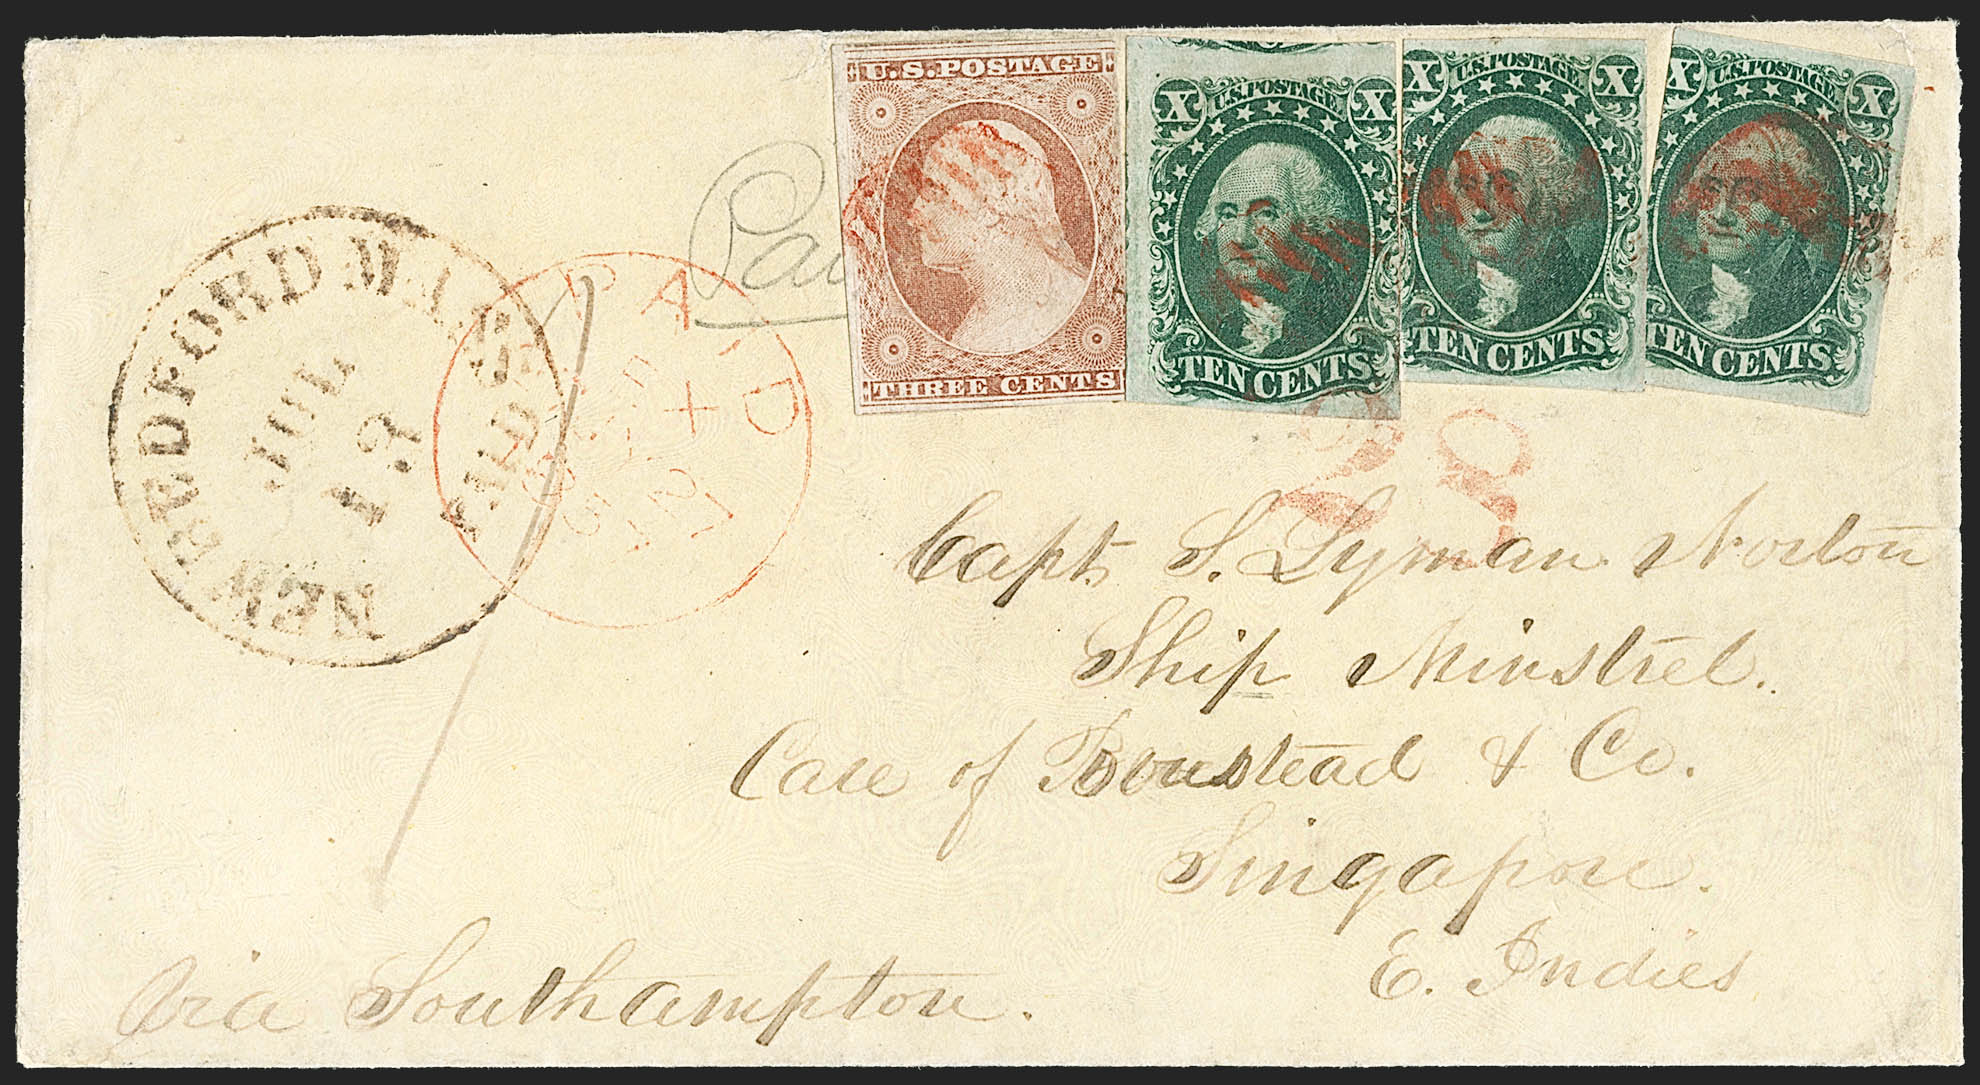 U.S. POSTAGE
THREE CENTS
X U.S. POSTAGE X
TEN CENTS
X U.S. POSTAGE X
TEN CENTS
X U.S. POSTAGE X
TEN CENTS
NEW BEDFORD MASS
JUL
13
PAID
PAID
Capt. S. Lyman Norton
Ship Minstrel.
Care of Boustead & Co.
Singapore.
E. Indies
Via Southampton.